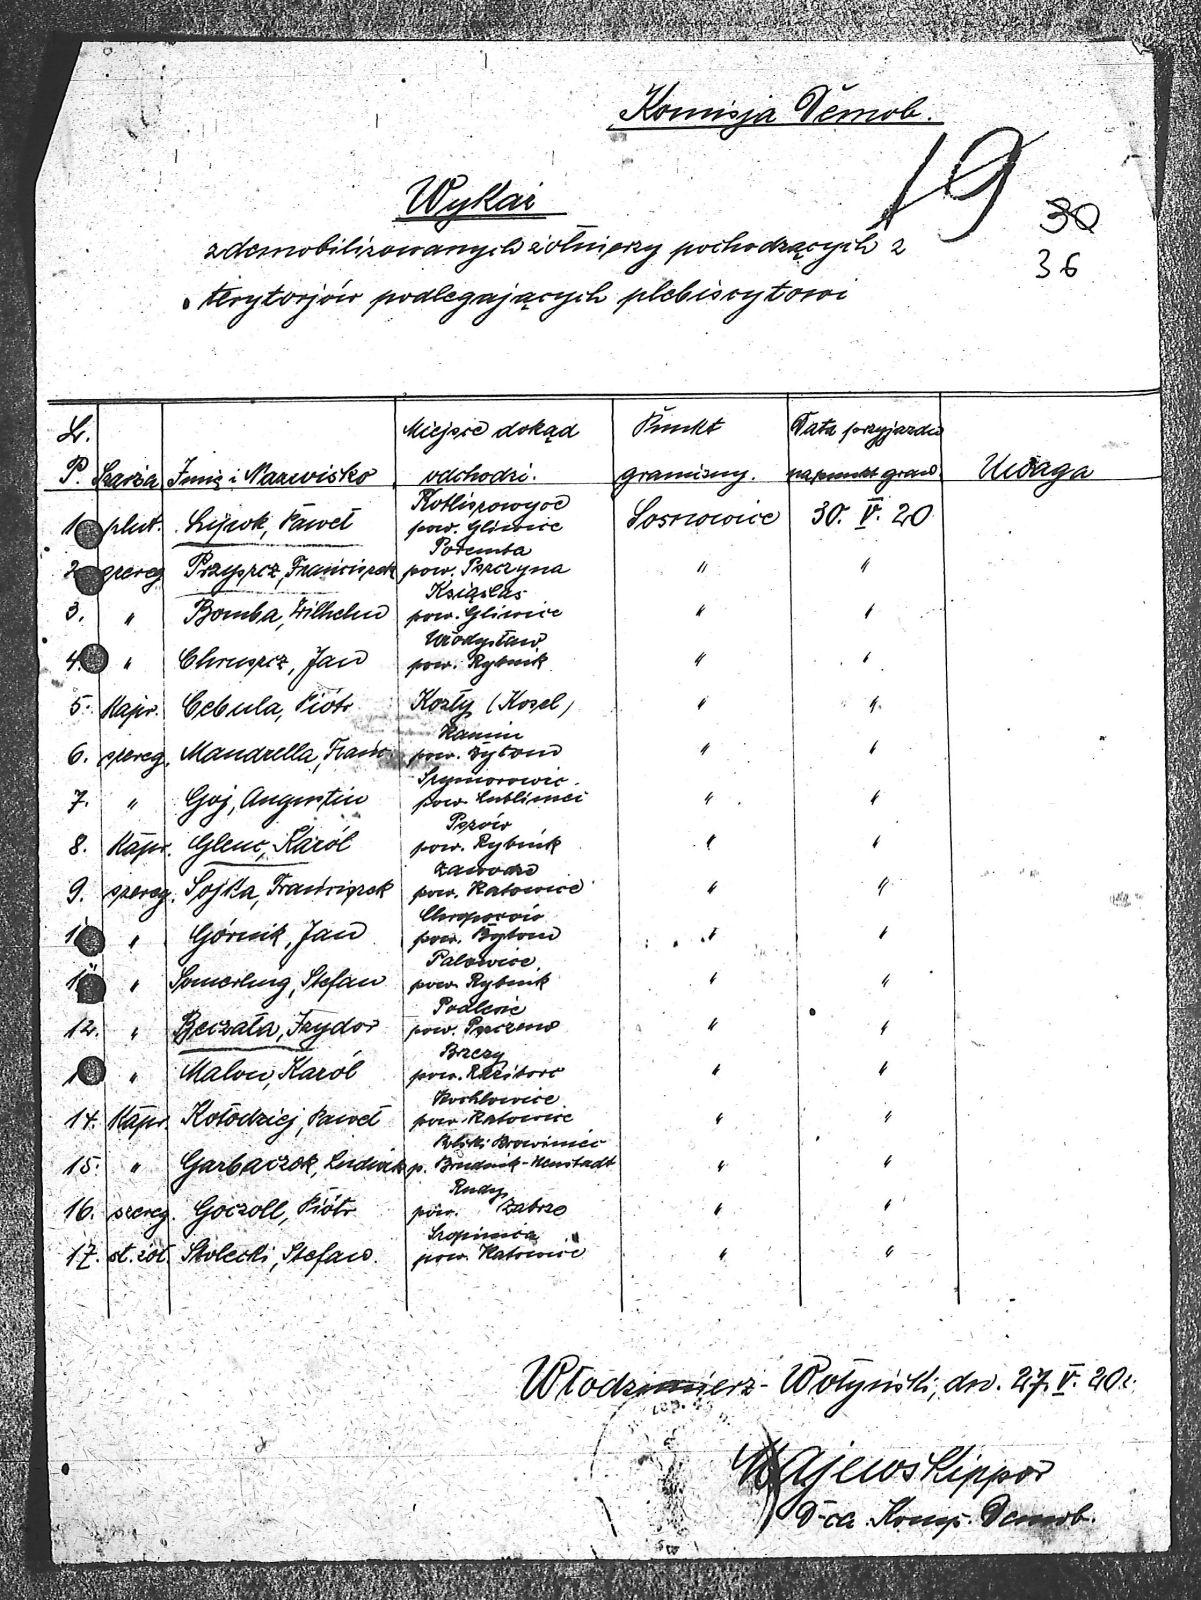 Komisja Demob.
19
30
36
Wykaz
zdemobilizowanych żołnierzy pochodzących z
terytorjów podlegających plebiscytowi
L. P. Szarża Imię i Nazwisko Miejsce dokąd odchodzi. Punkt graniczny. Data przyjazdu na punkt gran. Uwaga
1 plut. Paweł pow. Gliwice Sosnowice 30. V. 20
2 szereg Przyszcz, Franciszek Poremba pow. Pszczyna " "
3. " Bomba, Wilhelm pow. Gliwice " "
4. " Chruszcz, Jan Władysław pow. Rybnik " "
5. Kapr. Cebula, Piotr Kozły (Kosel) " "
6. szereg. Mandrella, Franc. Kamin pow. Bytom " "
7. " Goj, Augustin pow. Lublinci " "
8. Kapr. Glenc, Karól Pszów pow. Rybnik " "
9. szereg. Sojka, Franciszek Zawodze pow. Katowice " "
1 " Górnik, Jan pow. Bytom " "
1 " Somerling, Stefan Palowice pow. Rybnik " "
12. " Beczała, Izydor Podlesie pow. " "
1 " Karól Brzezy pow. " "
14. Kapr. Kołodziej, Paweł Kochłowice pow. Katowice " "
15. " Garbaczok, Ludwik Polski p. Prudnik-Neustadt " "
16. szereg. Goczoll, Piótr Rudy pow. Zabrze " "
17. st. żoł. Stolecki, Stefan. pow. Katowice " "
Włodzimierz-Wołyński, dn. 27. V. 20r.
Majewski ppor
D-ca Komp. Demob.